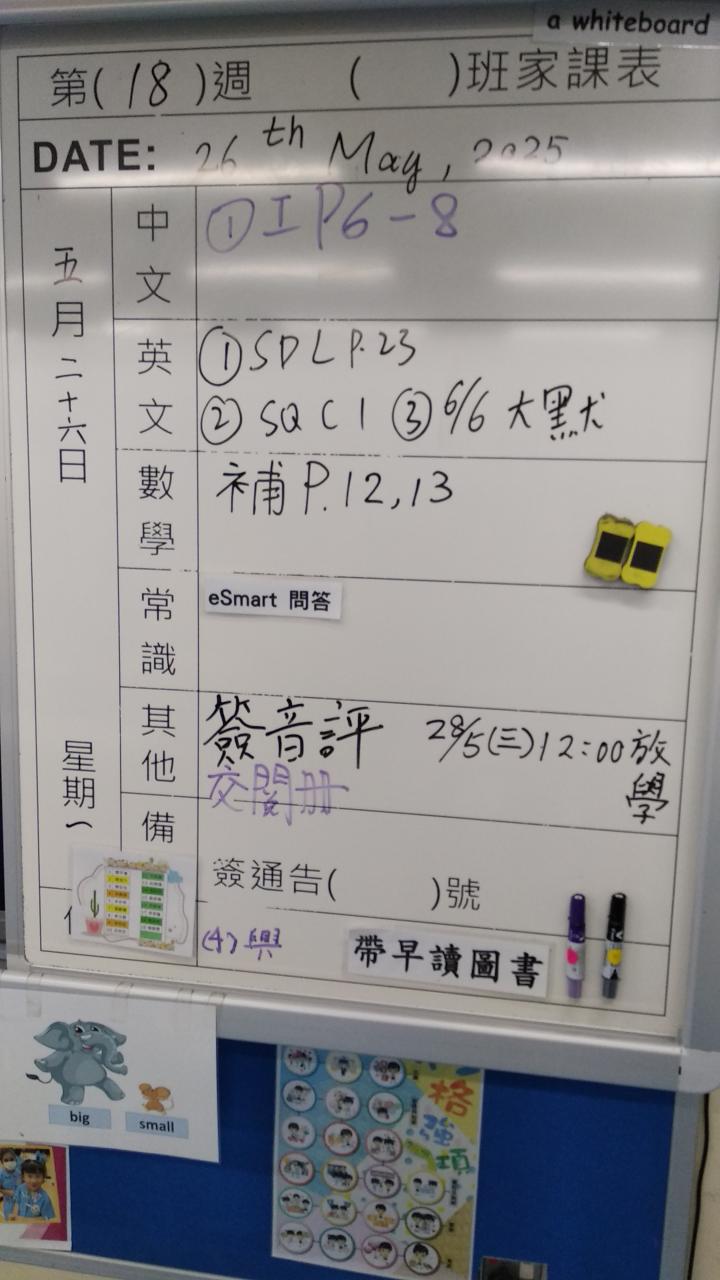 a whiteboard
第(18)週 ( )班家課表
DATE: 26th May, 2025
五月二十六日
星期一
中文
①工P6-8
英文
①SDL P.23
②SQC1 ③6/6 大默
數學
補P.12,13
常識
eSmart 問答
其他
簽音評 28/5(三)12:00放學
交閱冊
備
簽通告( )號
帶早讀圖書
big
small
格
強
項